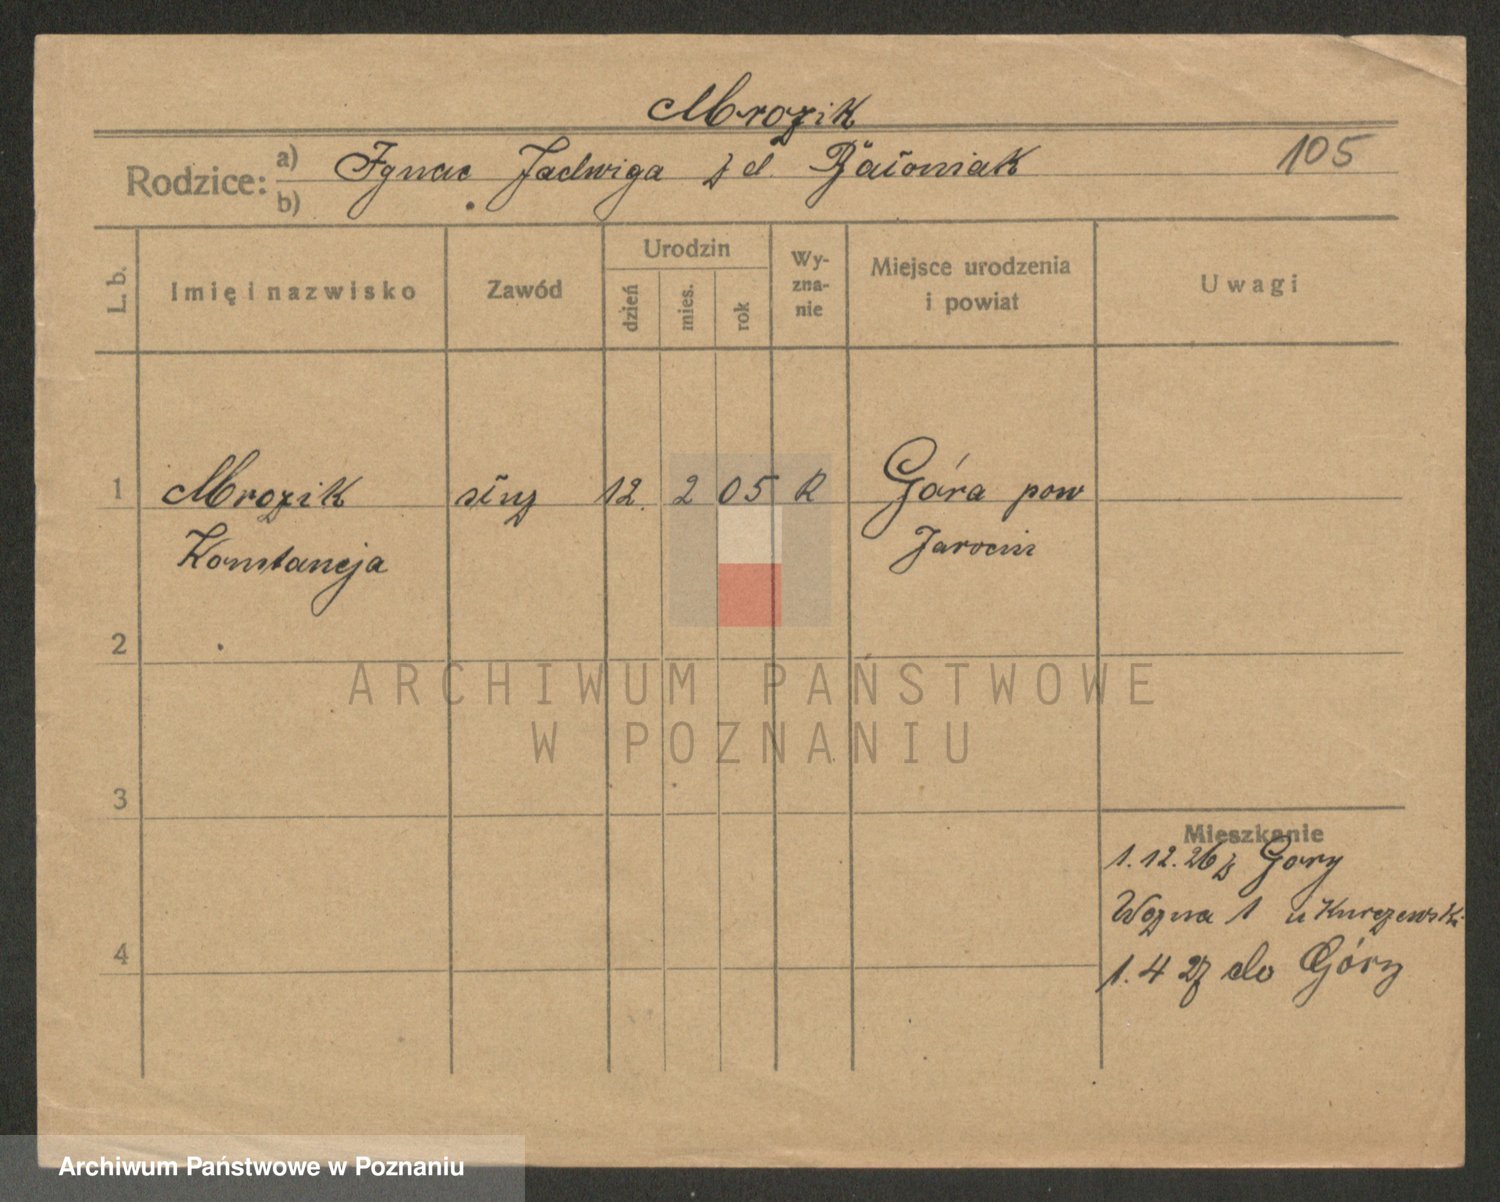 Mrozik
Rodzice: a) Ignac Jadwiga z d. 105
b)
L. b. Imię i nazwisko Zawód Urodzin dzień mies. rok Wyznanie Miejsce urodzenia i powiat Uwagi
1 Mrozik służ 12. 2 05 R Góra pow
Konstancja Jarocin
2
3
Mieszkanie
1.12.26 z Gory
Wozna 1 u Kurczewski
4 1.4 27 do Góry
ARCHIWUM PAŃSTWOWE
W POZNANIU
Archiwum Państwowe w Poznaniu